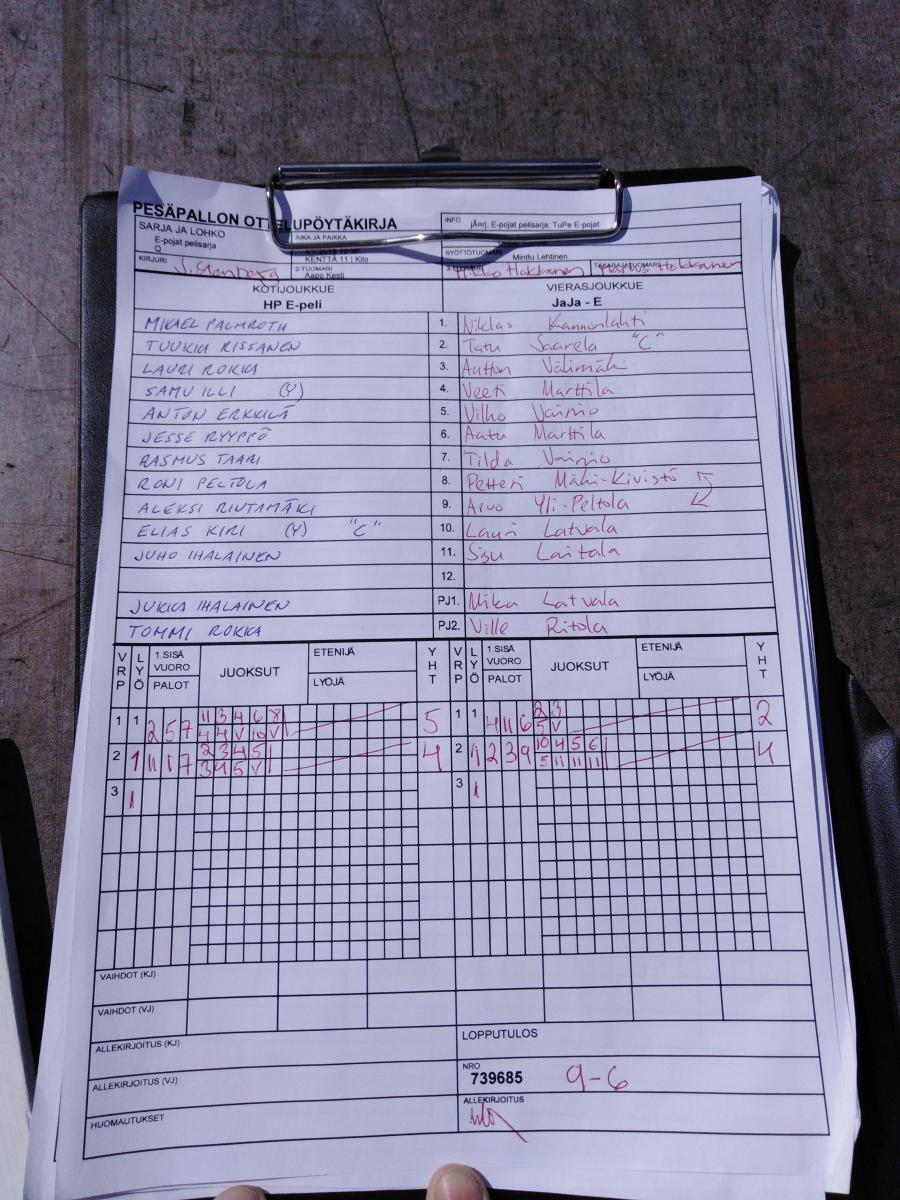 PESÄPALLON OTTELUPÖYTÄKIRJA
SARJA JA LOHKO
E-pojat pelisarja
AIKA JA PAIKKA
KENTTÄ 11 | Kilo
INFO
jÄrnj. E-pojat pelisarja: TuPe E-pojat
SYÖTTÖTUOMARI
Minttu Lehtinen
KIRJURI
2-TUOMARI
Aapo Kesti
KOTIJOUKKUE
HP E-peli
VIERASJOUKKUE
JaJa - E
MIKAEL PALMROTH 1. Niklas Kannonlahti
TUUKKA RISSANEN 2. Tatu Saarela "C"
LAURI ROKKA 3. Välimäki
SAMU ILLI (Y) 4. Veeti Marttila
ANTON ERKKILÄ 5. Vilho Vainio
JESSE RYYPPÖ 6. Aatu Marttila
RASMUS TAARI 7. Tilda Vainio
RONI PELTOLA 8. Petteri Mäki-Kivistö
ALEKSI RINTAMÄKI 9. Arvo Yli-Peltola
ELIAS KIRI (Y) "C" 10. Lauri Latvala
JUHO IHALAINEN 11. Sisu Laitala
12.
JUKKA IHALAINEN PJ1. Mika Latvala
TOMMI ROKKA PJ2. Ville Ritola
VRP LYÖ 1.SISÄ VUORO PALOT JUOKSUT ETENIJÄ LYÖJÄ YHT VRP LYÖ 1.SISÄ VUORO PALOT JUOKSUT ETENIJÄ LYÖJÄ YHT
11 3 4 6 8 2 3
1 1 2 5 7 4 4 V 10 V 5 1 1 4 11 6 5 V 2
2 3 4 5 10 4 5 6
2 1 11 1 7 3 4 5 V 4 2 1 2 3 9 5 11 11 11 4
3 1 3 1
VAIHDOT (KJ)
VAIHDOT (VJ)
ALLEKIRJOITUS (KJ)
LOPPUTULOS
ALLEKIRJOITUS (VJ)
NRO
739685 9-6
HUOMAUTUKSET
ALLEKIRJOITUS